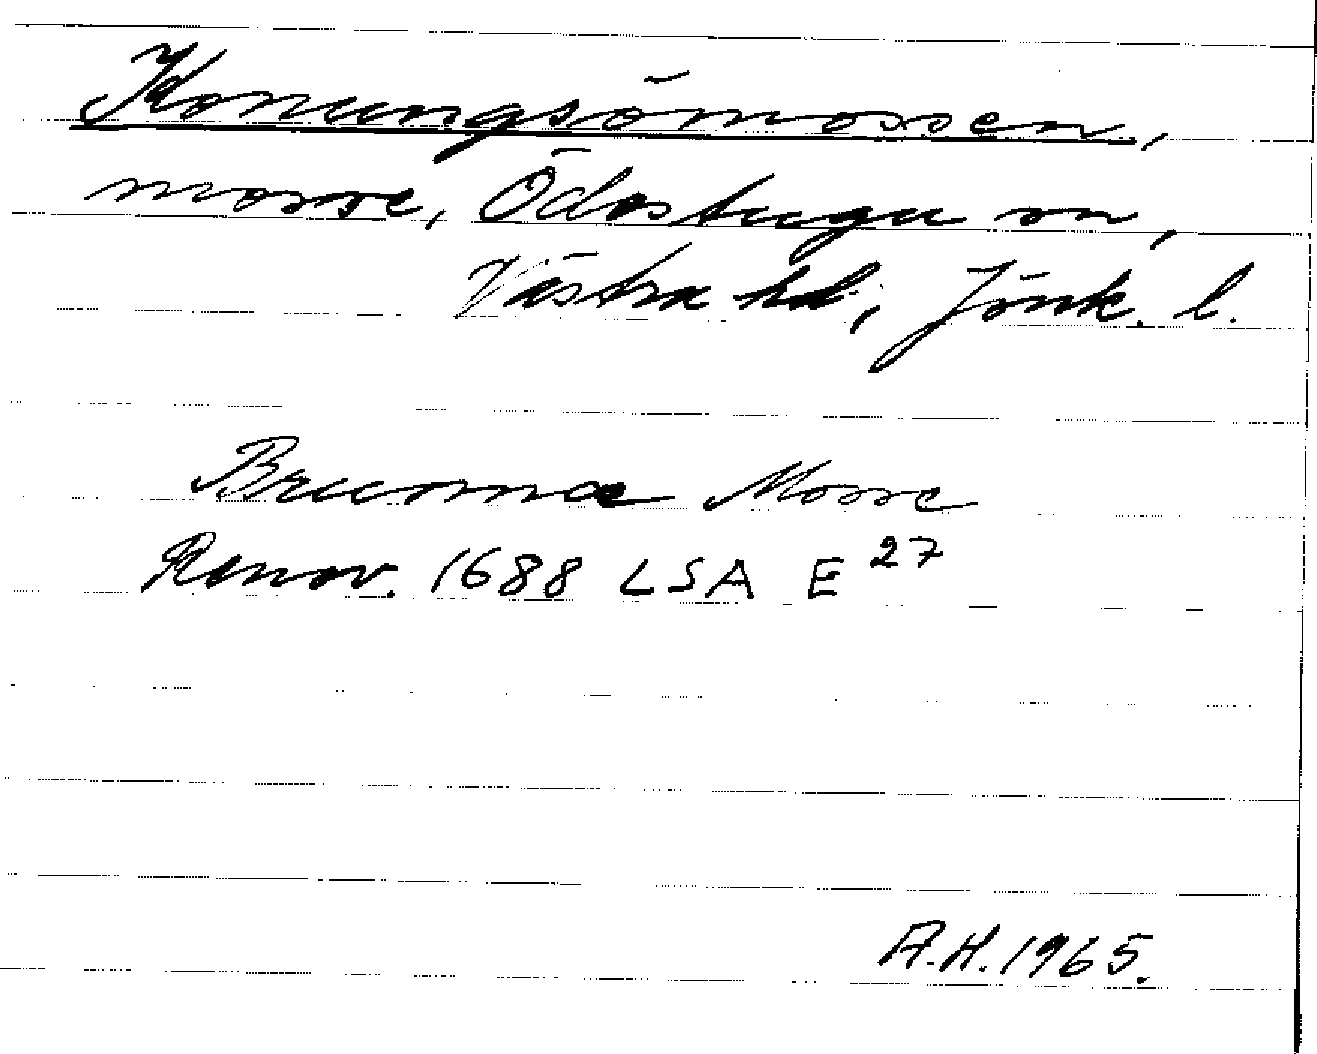 Konungsömossen,
mosse, Ödestugu sn,
Västra hd, Jönk. l.
Mosse
Renov. 1688 LSA E 27
A.H. 1965.